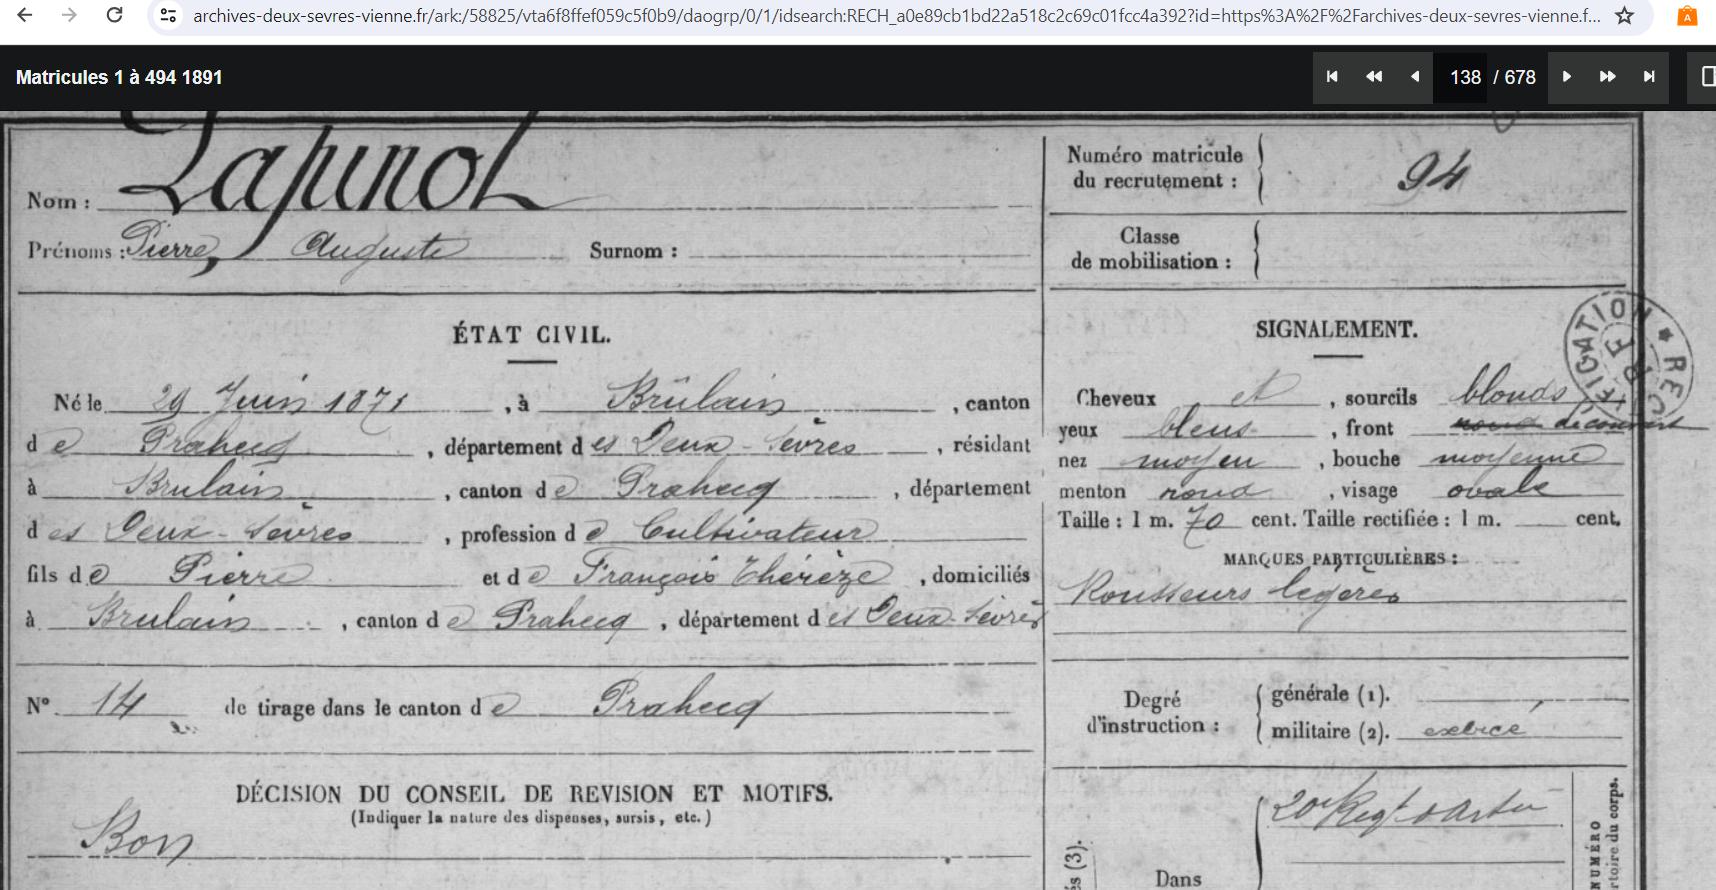 archives-deux-sevres-vienne.fr/ark:/58825/vta6f8ffef059c5f0b9/daogrp/0/1/idsearch:RECH_a0e89cb1bd22a518c2c69c01fcc4a392?id=https%3A%2F%2Farchives-deux-sevres-vienne.f...
Matricules 1 à 494 1891
138 / 678
Nom : Papinot
Prénoms : Pierre, Auguste Surnom :
Numéro matricule du recrutement : 94
Classe de mobilisation :
ÉTAT CIVIL.
Né le 29 Juin 1871, à Brûlain, canton
de Prahecq, département des Deux-Sèvres, résidant
à Brulain, canton de Prahecq, département
des Deux-Sèvres, profession de Cultivateur
fils de Pierre et de François Thérèze, domiciliés
à Brulain, canton de Prahecq, département des Deux-Sèvres
N° 14 de tirage dans le canton de Prahecq
DÉCISION DU CONSEIL DE REVISION ET MOTIFS.
(Indiquer la nature des dispenses, sursis, etc.)
Bon
SIGNALEMENT.
Cheveux et, sourcils blonds
yeux bleus, front rond découvert
nez moyen, bouche moyenne
menton rond, visage ovale
Taille : 1 m. 70 cent. Taille rectifiée : 1 m. cent.
MARQUES PARTICULIÈRES :
Rousseurs légères
Degré d'instruction :
générale (1).
militaire (2). exercé
20e Regt d'Artie
Dans
és (3).
NUMÉRO
rtoire du corps.